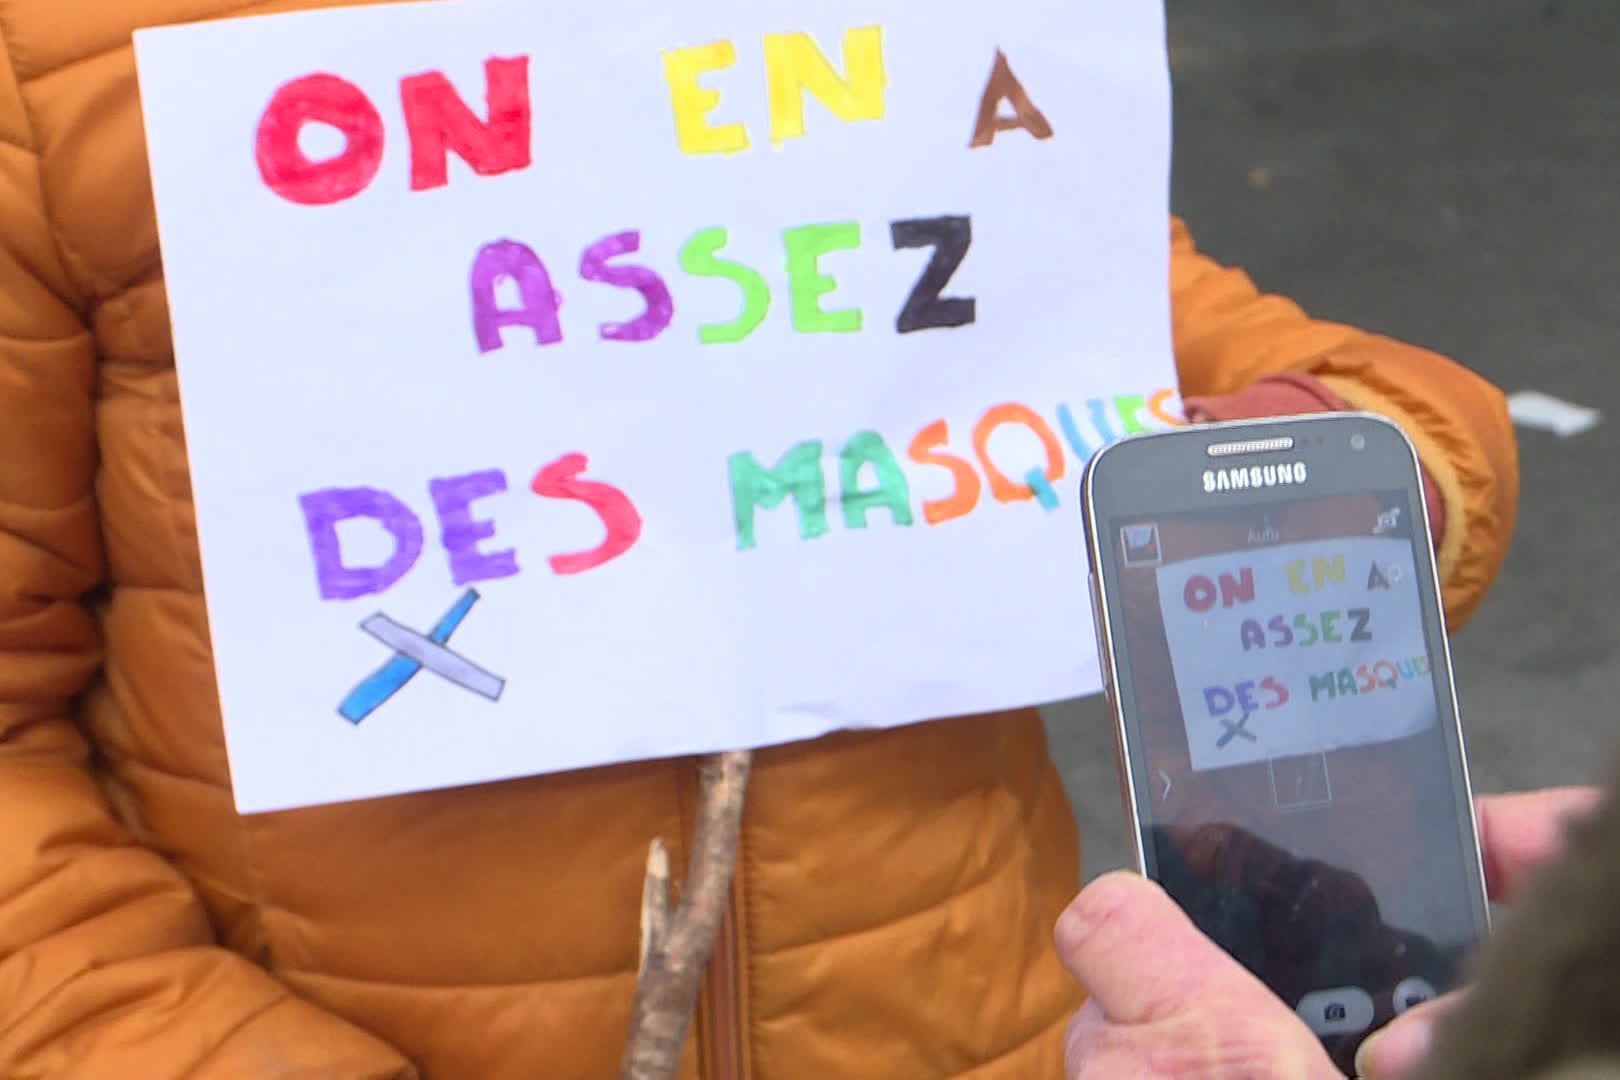 ON EN A
ASSEZ
DES MASQUES
SAMSUNG
Auto
ON EN A
ASSEZ
DES MASQUES